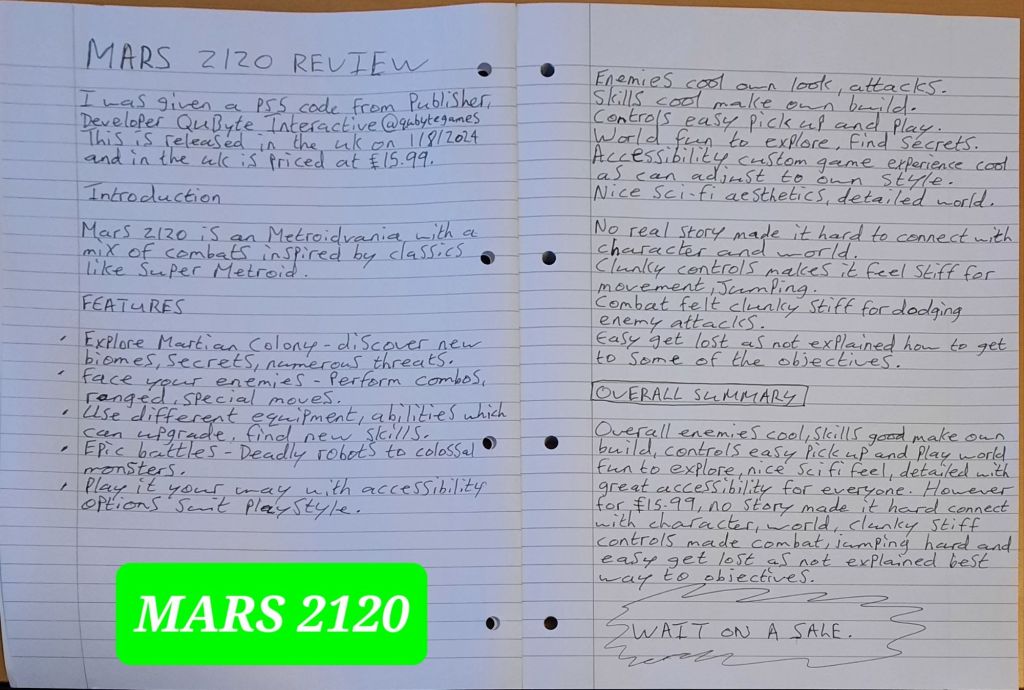 MARS 2120 REVIEW
I was given a PS5 code from Publisher,
Developer QuByte Interactive @qubytegames
This is released in the uk on 1/8/2024
and in the uk is priced at £15.99.
Introduction
Mars 2120 is an Metroidvania with a
mix of combats inspired by classics
like Super Metroid.
FEATURES
• Explore Martian Colony - discover new
biomes, secrets, numerous threats.
• Face your enemies - Perform combos,
ranged, special moves.
• Use different equipment, abilities which
can upgrade, find new skills.
• Epic battles - Deadly robots to colossal
monsters.
• Play it your way with accessibility
options suit playstyle.
MARS 2120
Enemies cool own look, attacks.
Skills cool make own build.
Controls easy pick up and play.
World fun to explore, find secrets.
Accessibility custom game experience cool
as can adjust to own style.
Nice sci-fi aesthetics, detailed world.
No real story made it hard to connect with
character and world.
Clunky controls makes it feel stiff for
movement, jumping.
Combat felt clunky stiff for dodging
enemy attacks.
Easy get lost as not explained how to get
to some of the objectives.
OVERALL SUMMARY
Overall enemies cool, skills good make own
build, controls easy pick up and play world
fun to explore, nice sci fi feel, detailed with
great accessibility for everyone. However
for £15.99, no story made it hard connect
with character, world, clunky stiff
controls made combat, jumping hard and
easy get lost as not explained best
way to objectives.
WAIT ON A SALE.